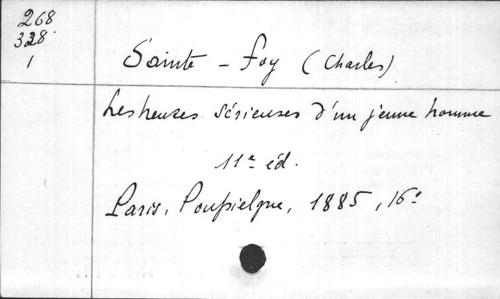 268
328
1
Sainte-Foy (Charles)
Les heures sérieuses d'un jeune homme
11e éd.
Paris, Poussielgue, 1885, 16°